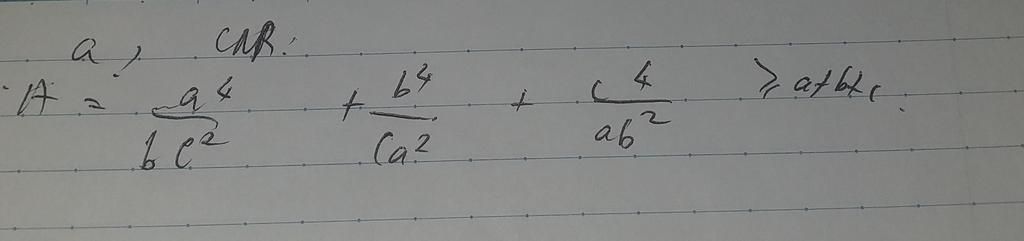 a, CMR:
A = a⁴/bc² + b⁴/ca² + c⁴/ab² ≥ a+b+c.